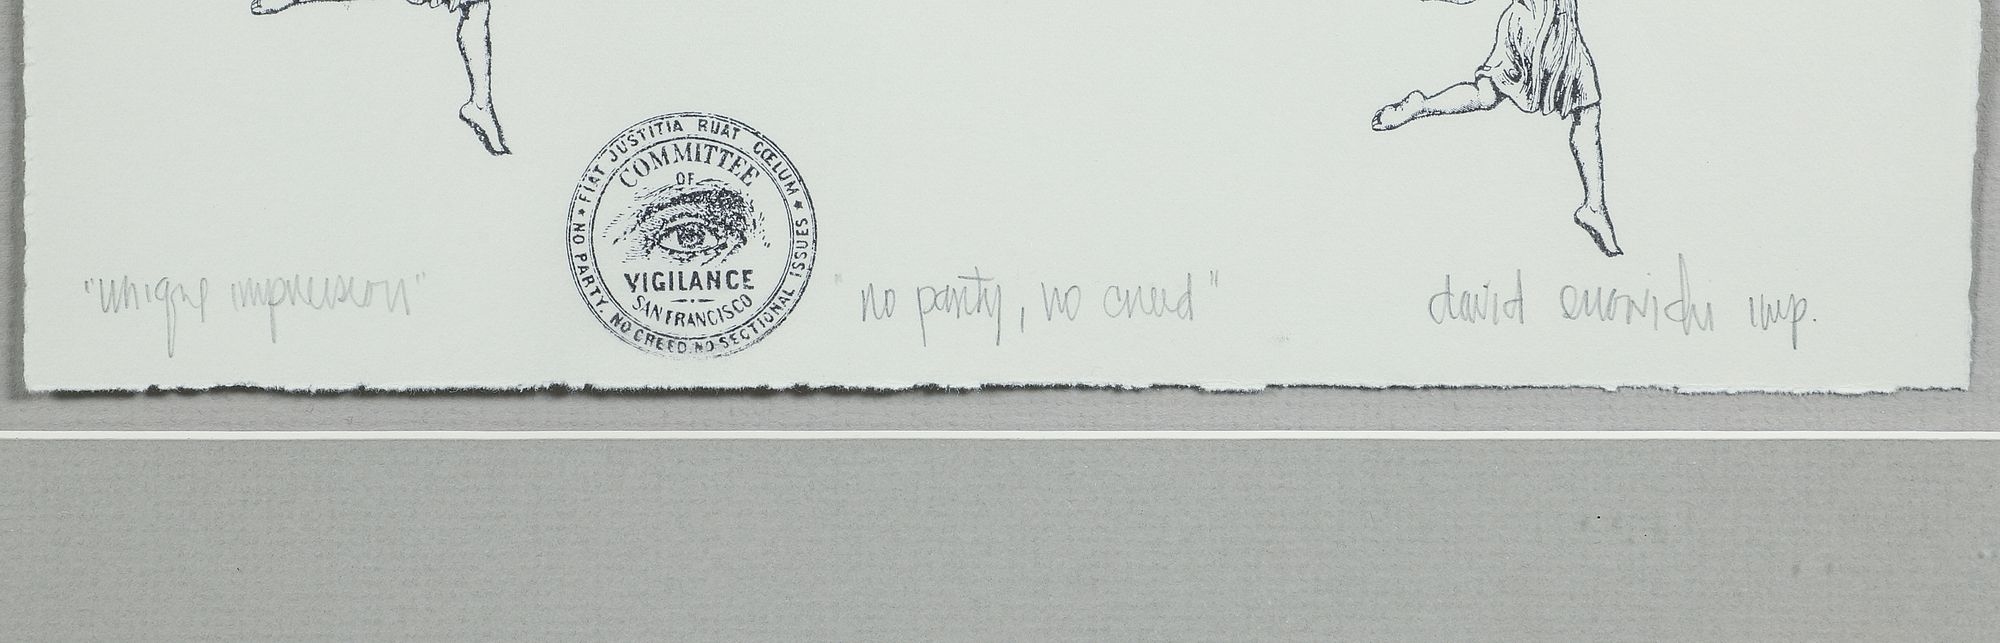 FIAT JUSTITIA RUAT CŒLUM
COMMITTEE
OF
VIGILANCE
SAN FRANCISCO
NO CREED. NO SECTIONAL ISSUES
NO PARTY.
"unique impression"
"no party, no creed"
david imp.